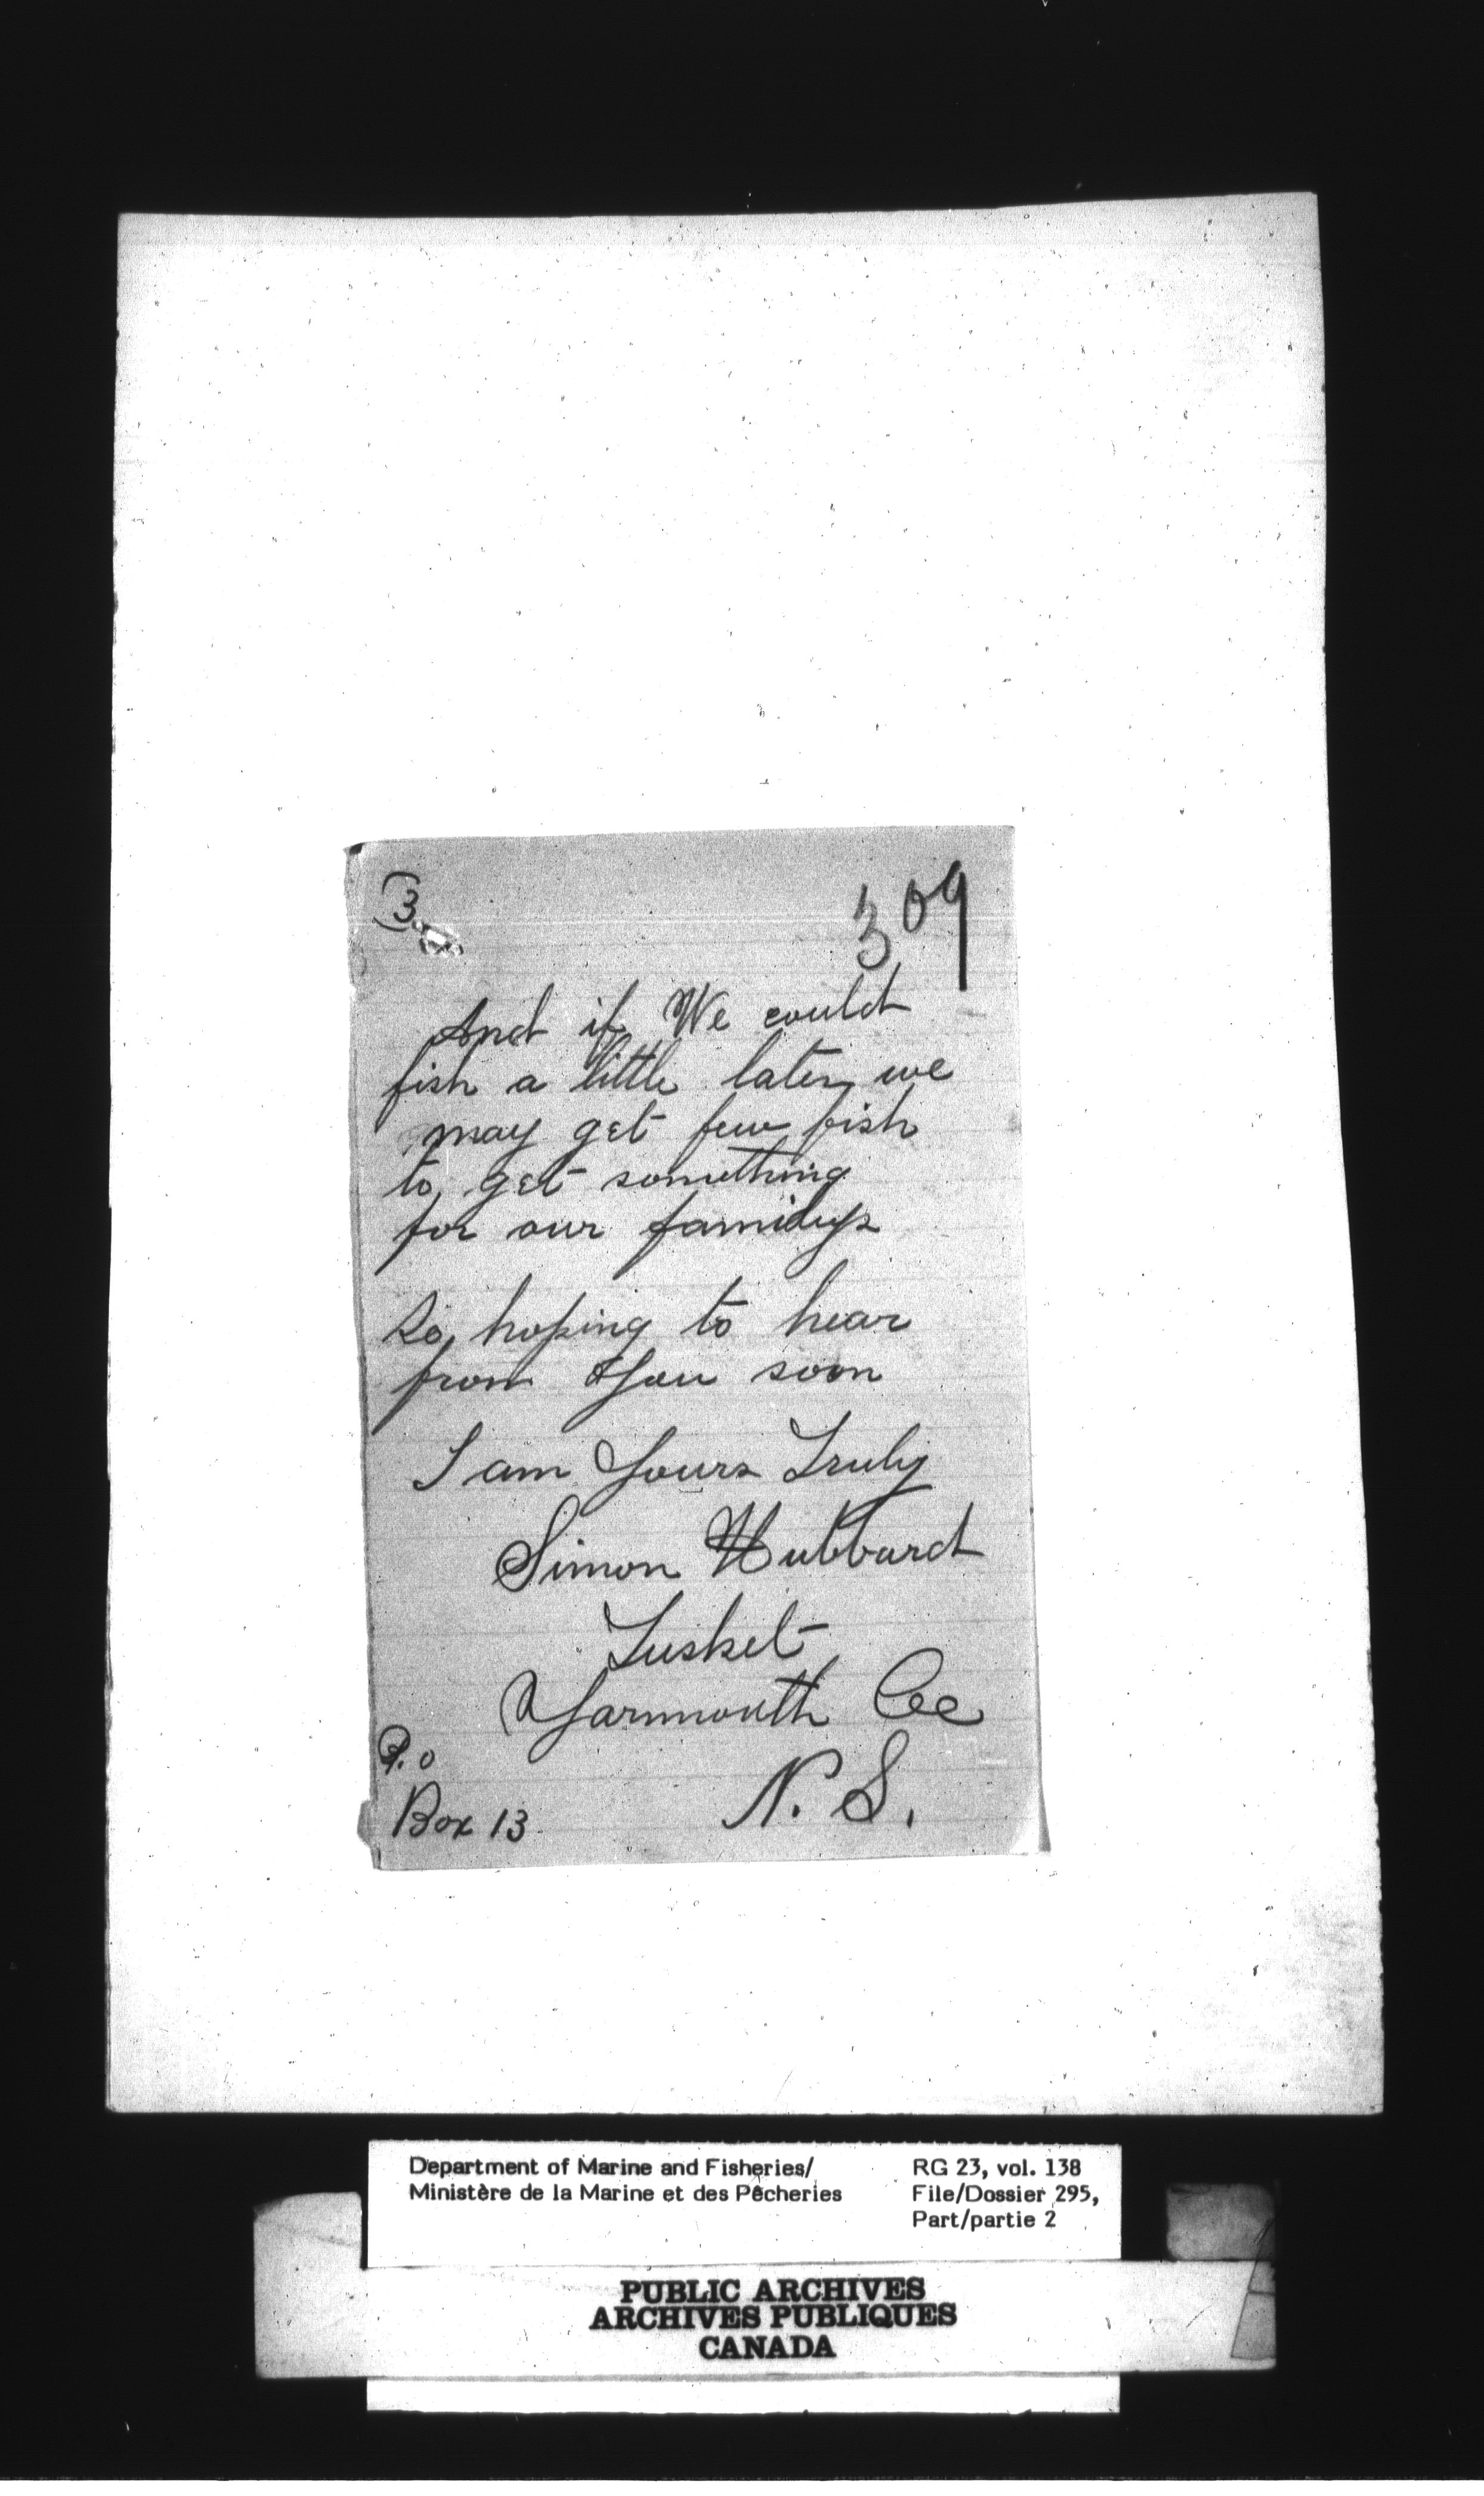 3.
309
And if We could
fish a little later we
may get few fish
to get something
for our familys
So hoping to hear
from You soon
I am Yours Truly
Simon Hubbard
Tusket
Yarmouth Co
P.O
Box 13
N. S.
Department of Marine and Fisheries/
Ministère de la Marine et des Pêcheries
RG 23, vol. 138
File/Dossier 295,
Part/partie 2
PUBLIC ARCHIVES
ARCHIVES PUBLIQUES
CANADA